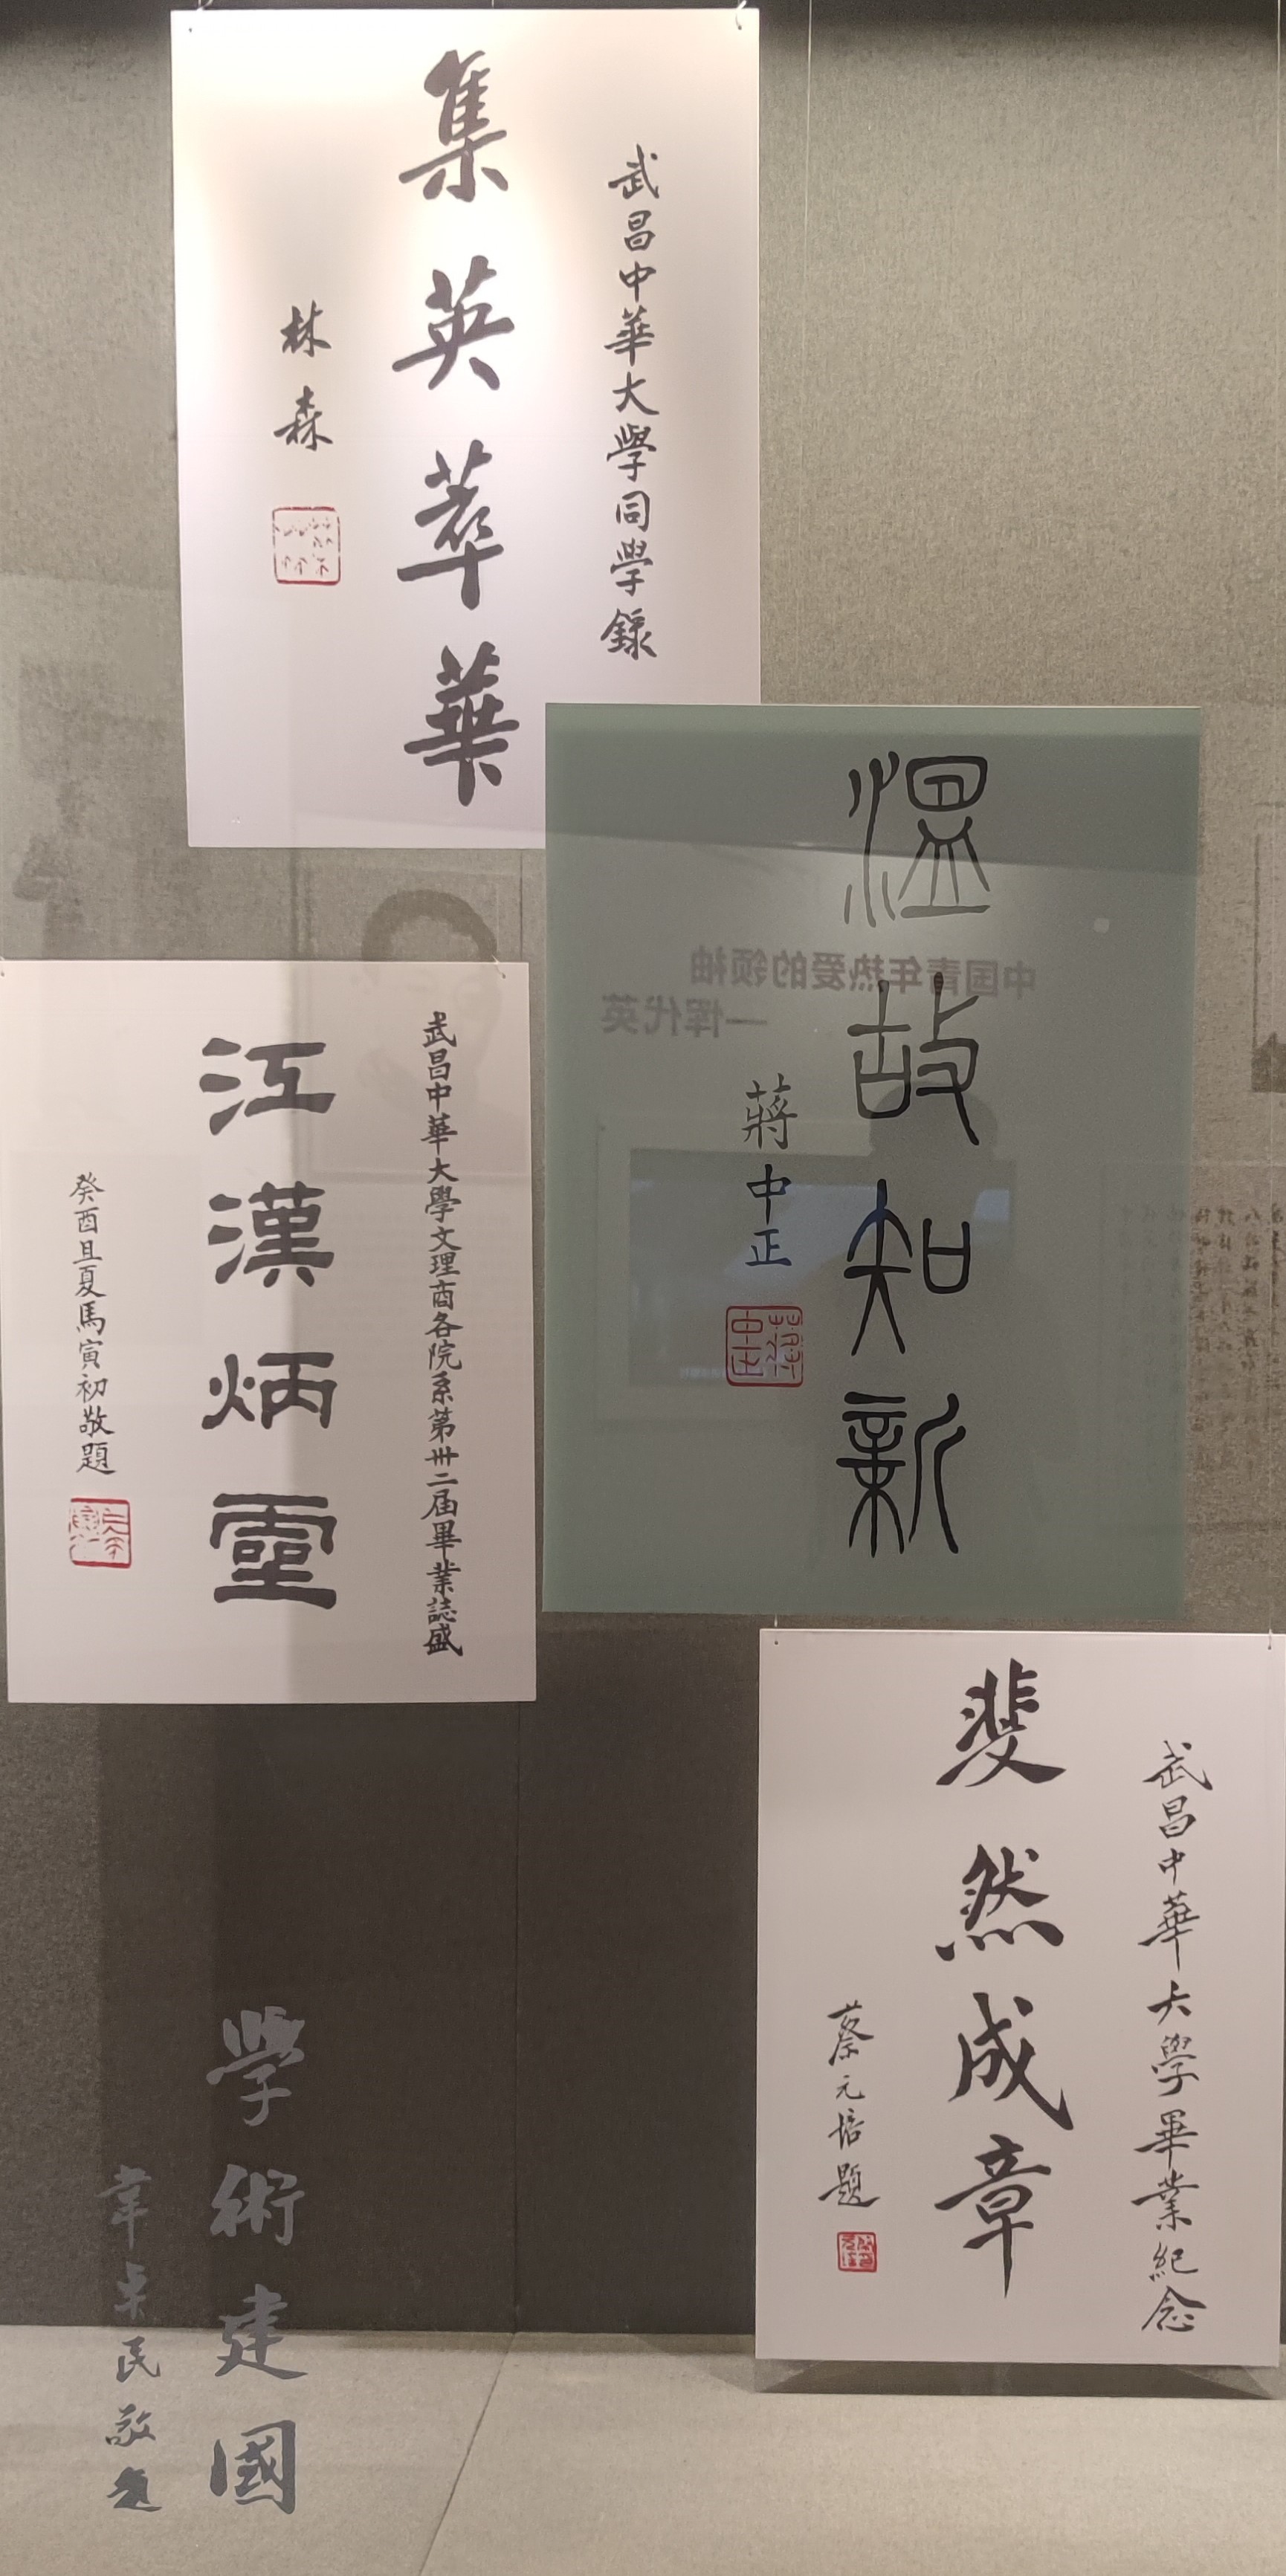 武昌中華大學同學錄
集英萃華
林森
溫故知新
蔣中正
蔣中正
中国青年热爱的领袖
—恽代英
武昌中華大學文理商各院系第卅二屆畢業誌盛
江漢炳靈
癸酉且夏馬寅初敬題
武昌中華大學畢業紀念
斐然成章
蔡元培題
學術建國
韋卓民敬題